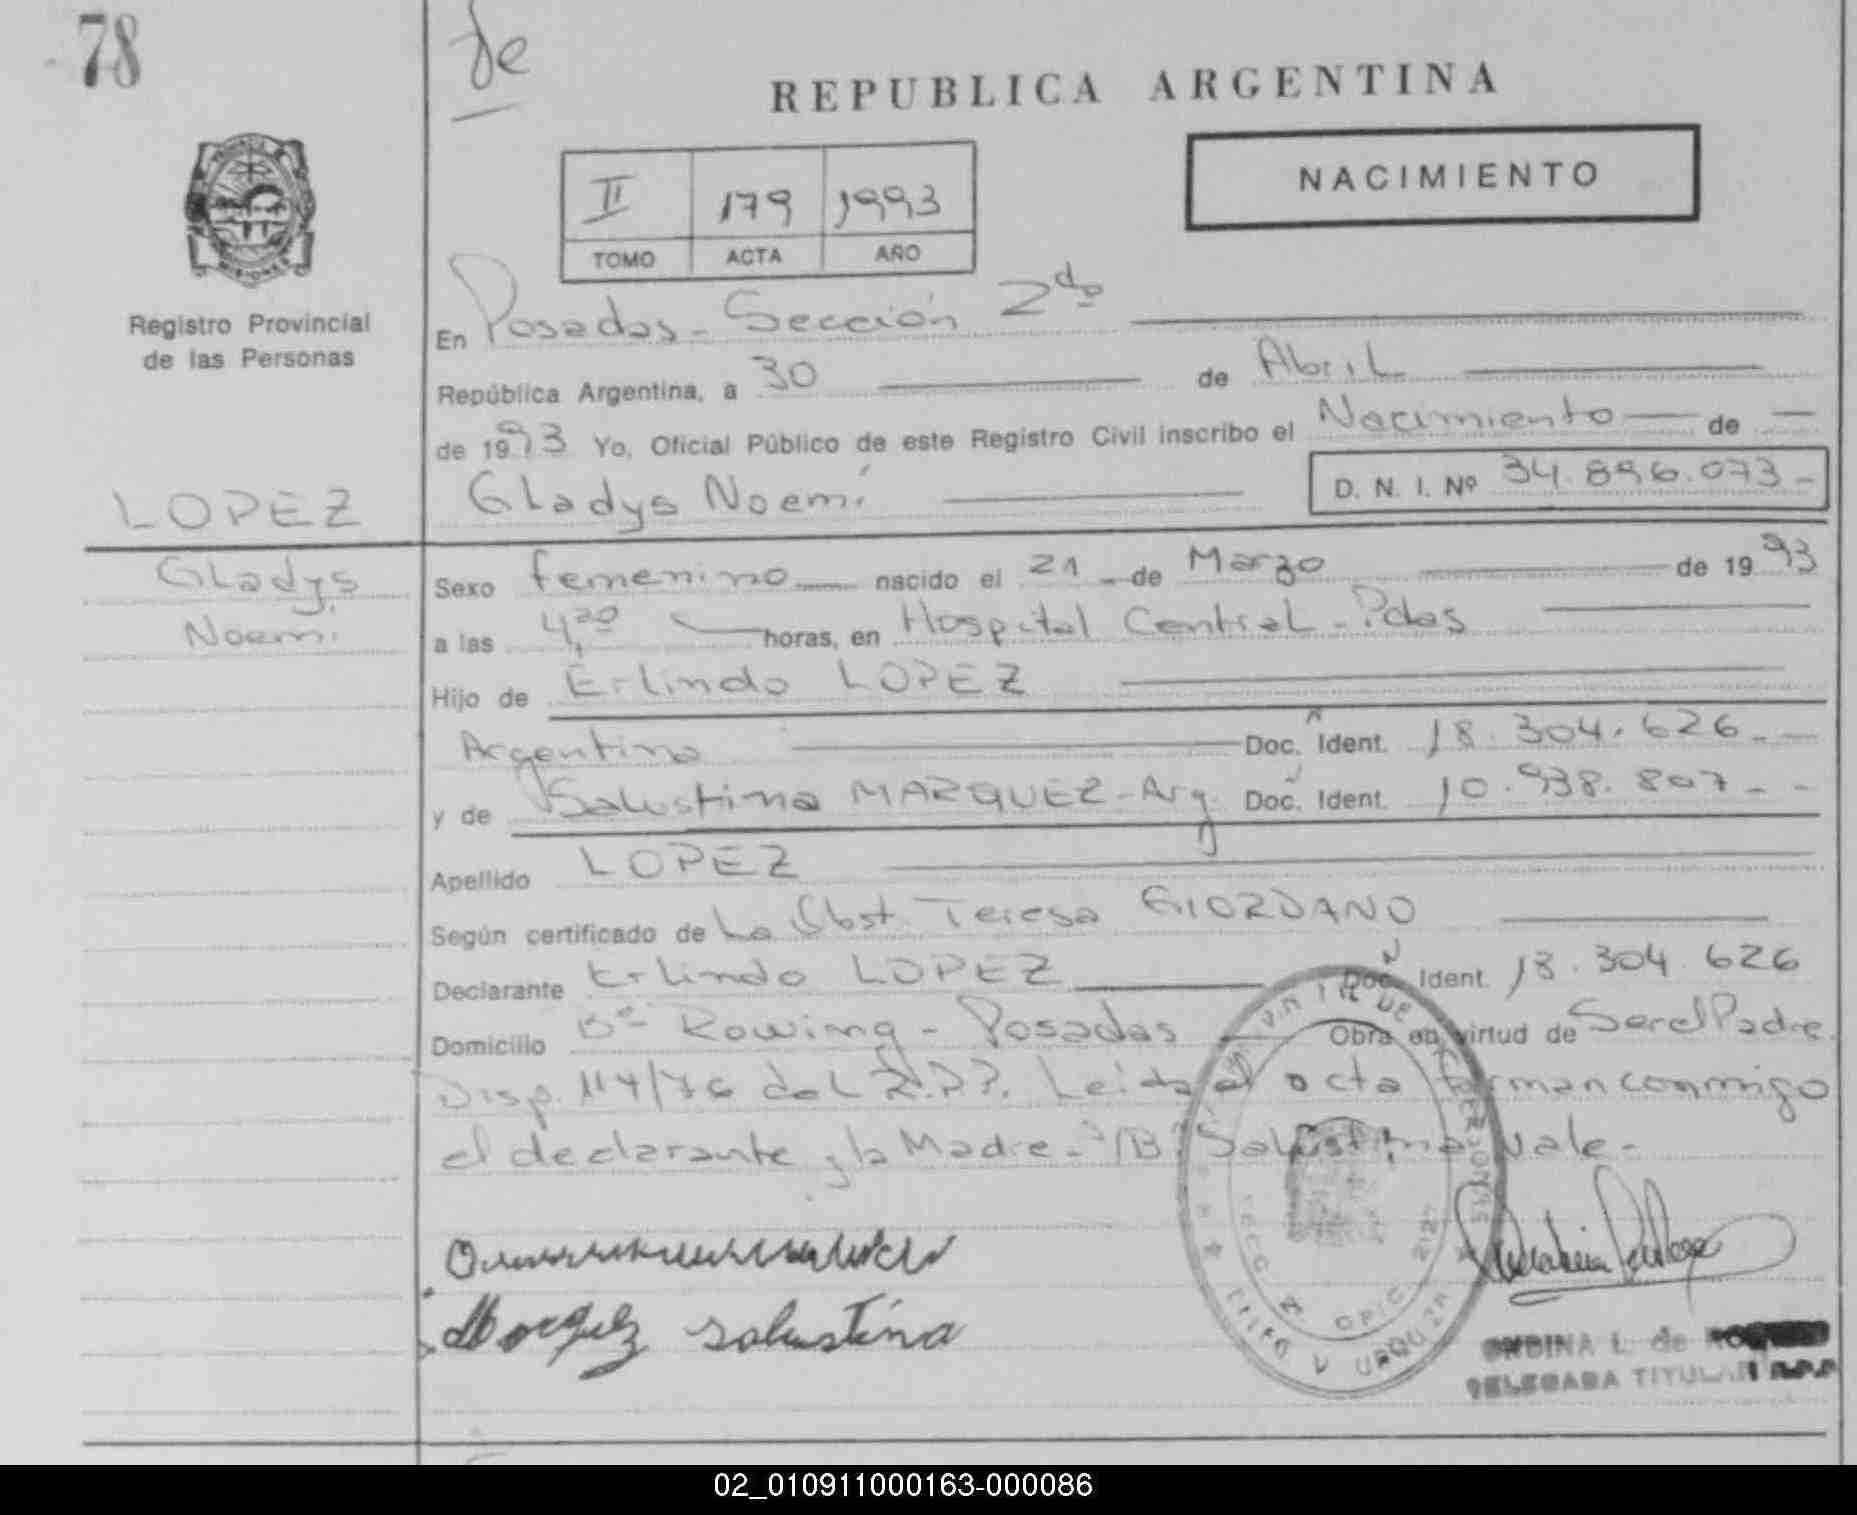 78
de
REPUBLICA ARGENTINA
NACIMIENTO
II 179 1993
TOMO ACTA AÑO
MISIONES
Registro Provincial
de las Personas
En Posadas - Sección 2da
República Argentina, a 30 de Abril
de 1993 Yo, Oficial Público de este Registro Civil inscribo el Nacimiento de
LOPEZ
Gladys Noemí
D. N. I. Nº 34.896.073-
Gladys
Noemí
Sexo femenino nacido el 21 de Marzo de 1993
a las 4,20 horas, en Hospital Central - Pdas
Hijo de Erlindo LOPEZ
Argentino Doc. Ident. 18.304.626 - -
y de Salustina MARQUEZ - Arg. Doc. Ident. 10.938.807 - -
Apellido LOPEZ
Según certificado de La Obst. Teresa GIORDANO
Declarante Erlindo LOPEZ Doc. Ident. 18.304.626
Domicilio Bº Rowing - Posadas Obra en virtud de Ser el Padre
Disp. 114/76 del R.P.P. Leída el acta firman conmigo
el declarante y la Madre - S/B: Salustina Vale -
Marquez Salustina
ONDINA L. de
DELEGADA TITULAR R.P.P
02_010911000163-000086